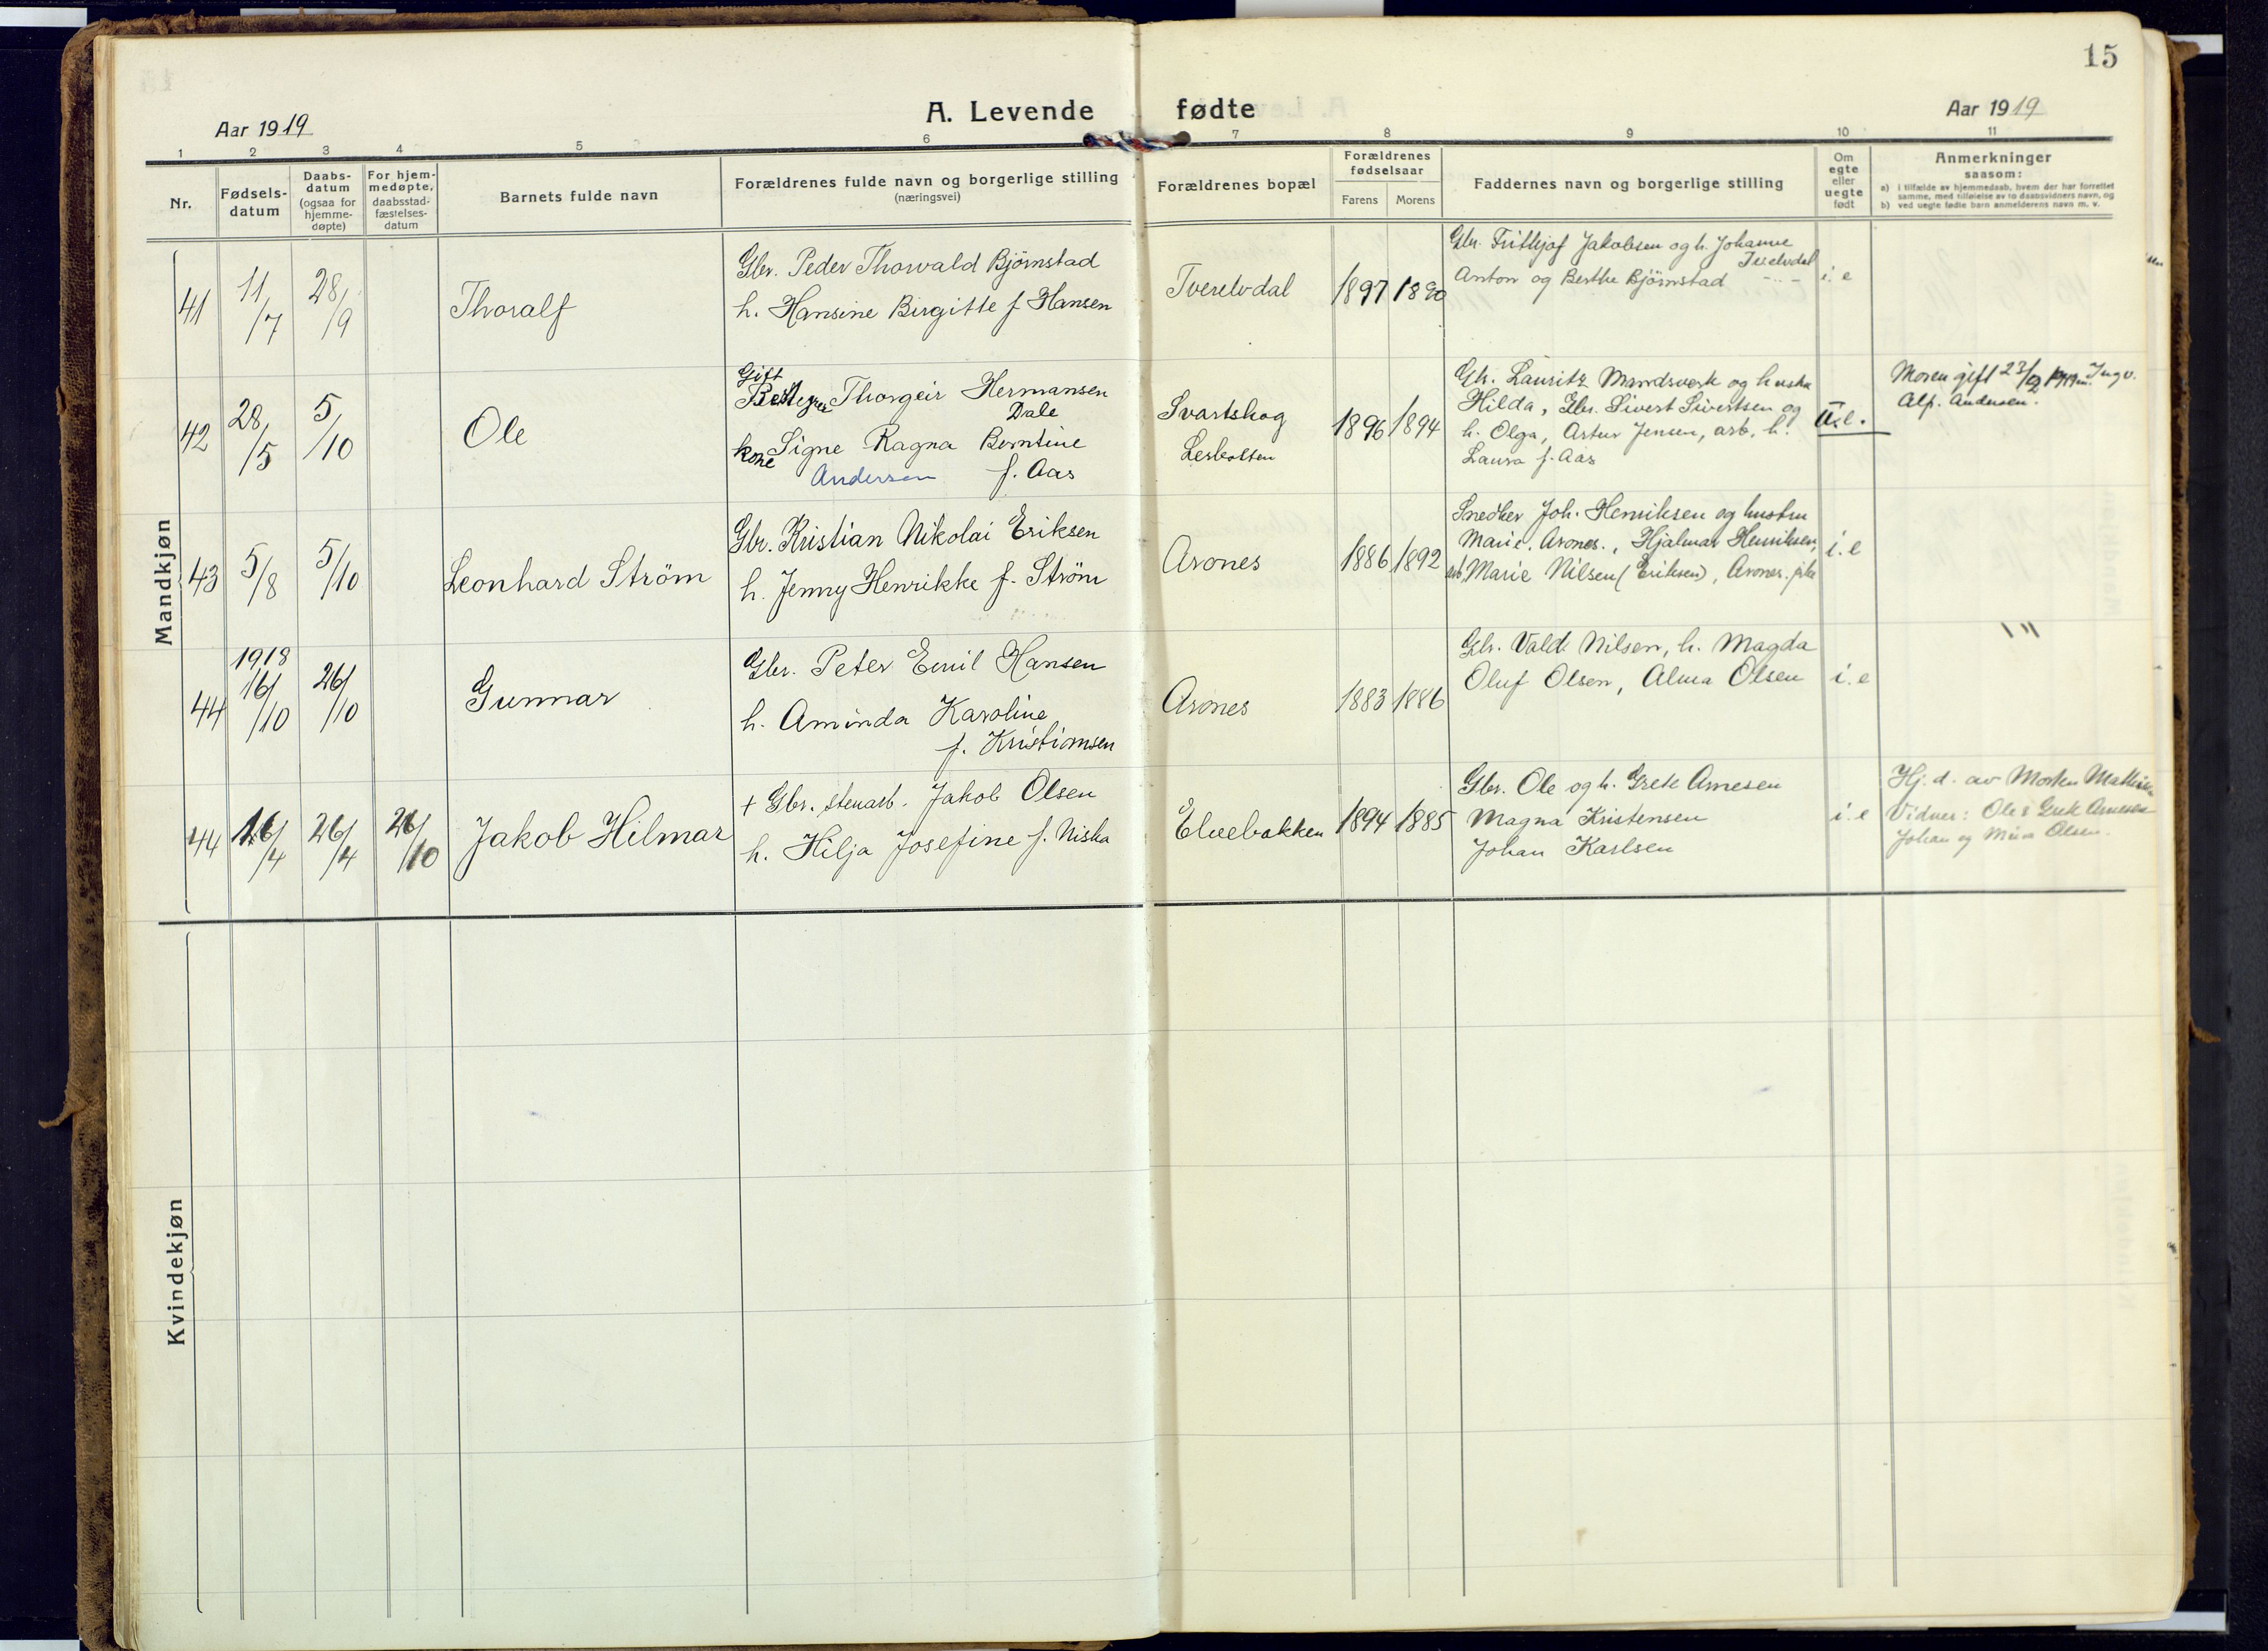 15
A. Levende fødte
Aar 1919
Aar 1919
1 2 3 4 5 6 7 8 9 10 11
Nr.
Fødsels-
datum
Daabs-
datum
(ogsaa for
hjemme-
døpte)
For hjem-
medøpte,
daabsstad-
fæstelses-
datum
Barnets fulde navn
Forældrenes fulde navn og borgerlige stilling
(næringsvei)
Forældrenes bopæl
Forældrenes
fødselsaar
Farens Morens
Faddernes navn og borgerlige stilling
Om
egte
eller
uegte
født
Anmerkninger
saasom:
a) i tilfælde av hjemmedaab, hvem der har forrettet
samme, med tilføielse av to daabsvidners navn, og
b) ved uegte fødte barn anmelderens navn m. v.
Mandkjøn
41 11/7 28/9 Thoralf
Gbr. Peder Thorvald Bjørnstad
h. Hansine Birgitte f. Hansen
Tverelvdal 1897 1890
Gbr. Frithjof Jakobsen og h. Johanne
Tverelvdal
Anton og Berthe Bjørnstad - " -
i. e
42 28/5 5/10 Ole
Gift
Thorgeir Hermansen
Dale
kone Signe Ragna Berntine
Andersen f. Aas
Svartskog
1896 1894
Gbr. Lauritz Mandsverk og hustru
Hilda, Gbr. Sivert Sivertsen og
h. Olga, Artur Jensen, arb. h.
Laura f. Aas
U.e.
Moren gift 23/2 1919 m. Ingv.
Alf. Andersen.
43 5/8 5/10 Leonhard Strøm
Gbr. Kristian Nikolai Eriksen
h. Jenny Henrikke f. Strøm
Arones 1886 1892
Snedker Joh. Henriksen og hustru
Marie. Arones., Hjalmar Henriksen,
arb. Marie Nilsen (Eriksen), Arones. pike
i. e
44 1918 16/10 26/10 Gunnar
Gbr. Peter Emil Hansen
h. Aminda Karoline
f. Kristiansen
Arones 1883 1886
Gbr. Vald. Nilsen, h. Magda
Oluf Olsen, Alma Olsen
i. e
44 16/4 26/4 26/10 Jakob Hilmar
+ Gbr. stenarb. Jakob Olsen
h. Hilja Josefine f. Niska
Elvebakken 1894 1885
Gbr. Ole og h. Grete Arnesen
Magna Kristensen
Johan Karlsen
i. e
Hj. d. av Morten
Vidner: Ole & Grete Arnesen
Johan og Olsen.
Kvindekjøn